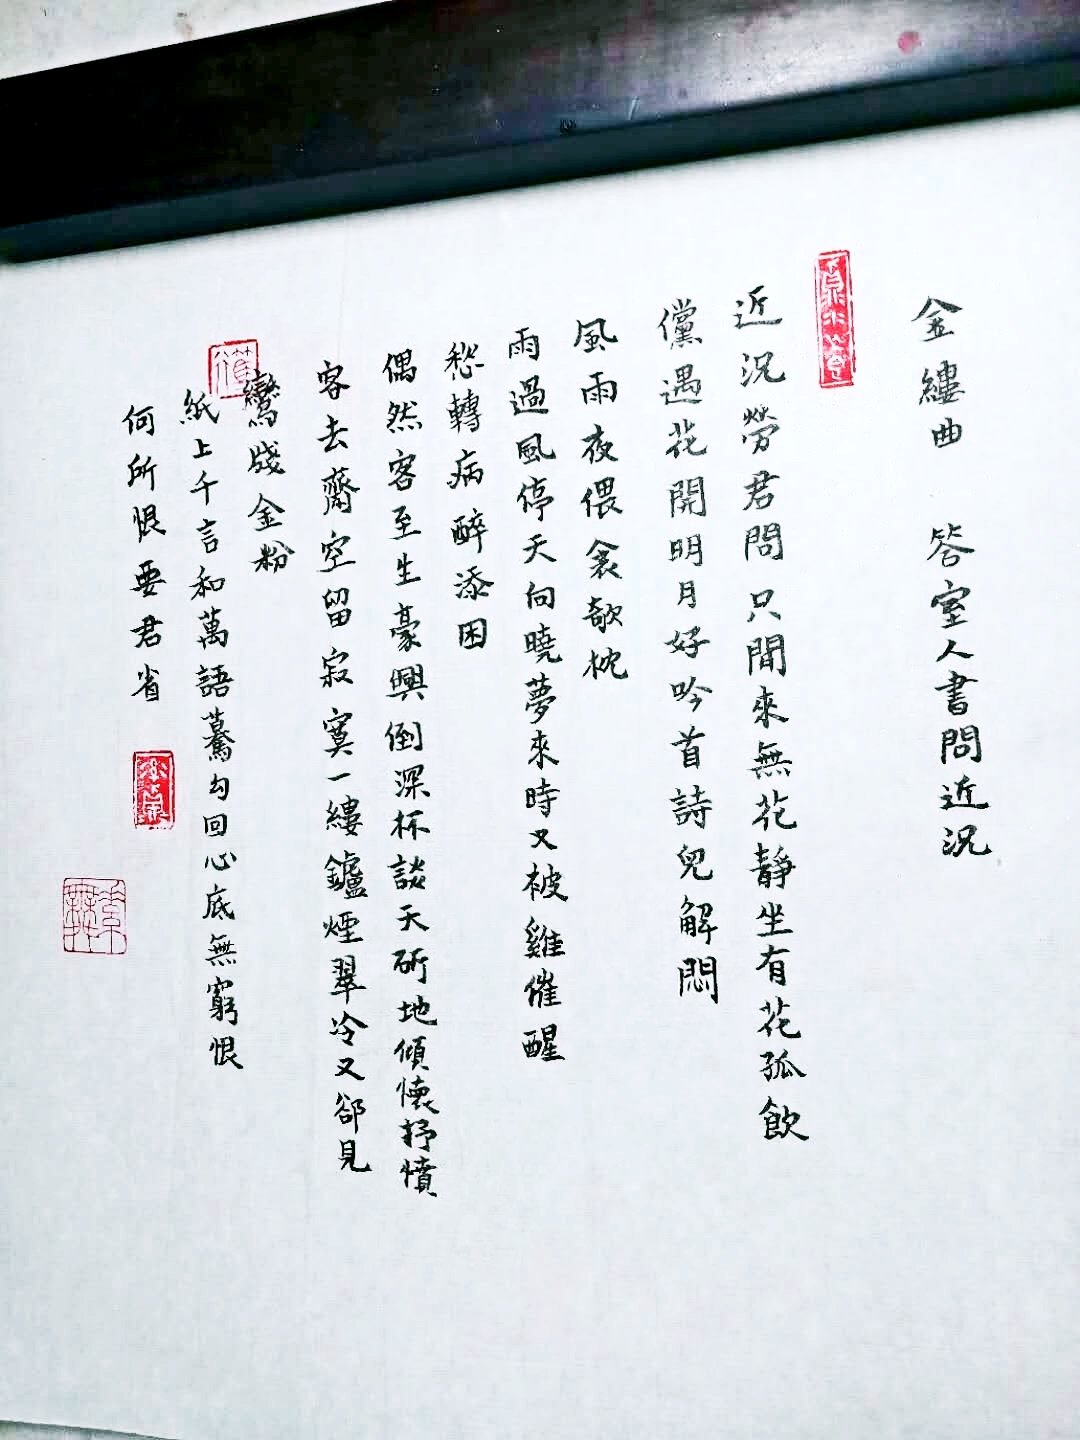 金縷曲 答室人書問近況
近況勞君問只閒來無花靜坐有花孤飲
儻遇花開明月好吟首詩兒解悶
風雨夜偎衾欹枕
雨過風停天向曉夢來時又被雞催醒
愁轉病醉添困
偶然客至生豪興倒深杯談天斫地傾懷抒憤
客去齋空留寂寞一縷鑪煙翠冷又卻見
鸞牋金粉
紙上千言和萬語驀勾回心底無窮恨
何所恨要君省